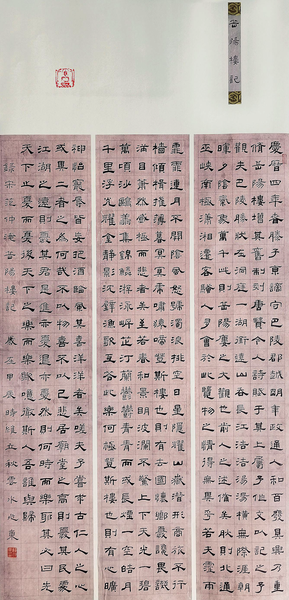 岳陽樓記
慶曆四年春滕子京謫守巴陵郡越明年政通人和百廢具興乃重
脩岳陽樓增其舊制刻唐賢今人詩賦于其上屬予作文以記之予
觀夫巴陵勝狀在洞庭一湖銜遠山吞長江浩浩湯湯橫無際涯朝
暉夕陰氣象萬千此則岳陽樓之大觀也前人之述備矣然則北通
巫峽南極瀟湘遷客騷人多會於此覽物之情得無異乎若夫霪雨
霏霏連月不開陰風怒號濁浪排空日星隱耀山岳潛形商旅不行
檣傾楫摧薄暮冥冥虎嘯猿啼登斯樓也則有去國懷鄉憂讒畏譏
滿目蕭然感極而悲者矣至若春和景明波瀾不驚上下天光一碧
萬頃沙鷗翔集錦鱗游泳岸芷汀蘭鬱鬱青青而或長煙一空皓月
千里浮光躍金靜影沉璧漁歌互答此樂何極登斯樓也則有心曠
神怡寵辱皆忘把酒臨風其喜洋洋者矣嗟夫予嘗求古仁人之心
或異二者之為何哉不以物喜不以己悲居廟堂之高則憂其民處
江湖之遠則憂其君是進亦憂退亦憂然則何時而樂耶其必曰先
天下之憂而憂後天下之樂而樂歟噫微斯人吾誰與歸
錄宋范仲淹岳陽樓記 歲在甲辰時維立秋雲水心東